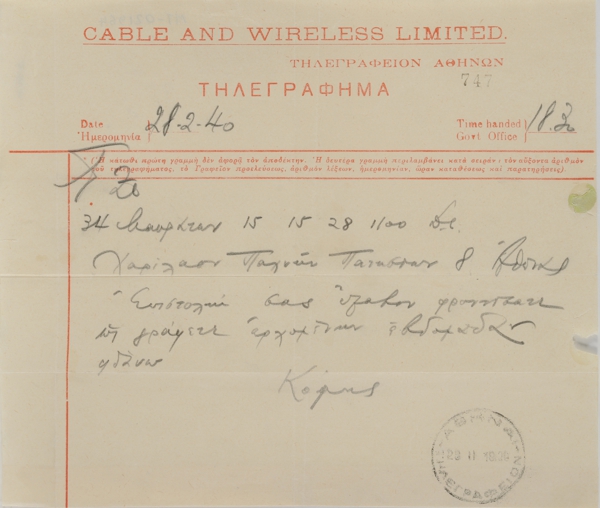 CABLE AND WIRELESS LIMITED.
ΤΗΛΕΓΡΑΦΕΙΟΝ ΑΘΗΝΩΝ
747
ΤΗΛΕΓΡΑΦΗΜΑ
Date
Ἡμερομηνία
28-2-40
Time handed
Govt Office
18.30
(Ἡ κάτωθι πρώτη γραμμὴ δὲν ἀφορᾷ τὸν ἀποδέκτην. Ἡ δευτέρα γραμμὴ περιλαμβάνει κατὰ σειρὰν: τὸν αὔξοντα ἀριθμὸν
τοῦ τηλεγραφήματος, τὸ Γραφεῖον προελεύσεως, ἀριθμὸν λέξεων, ἡμερομηνίαν, ὥραν καταθέσεως καὶ παρατηρήσεις)
34 15 15 28 1100
Χαρίλαον Πατησίων 8
Ἐπιστολὴν σας ἔλαβον
γράψετε ἐρχομένην ἑβδομάδαν
φθάνω
ΑΘΗΝΑΙ
ΤΗΛΕΓΡΑΦΕΙΟΝ